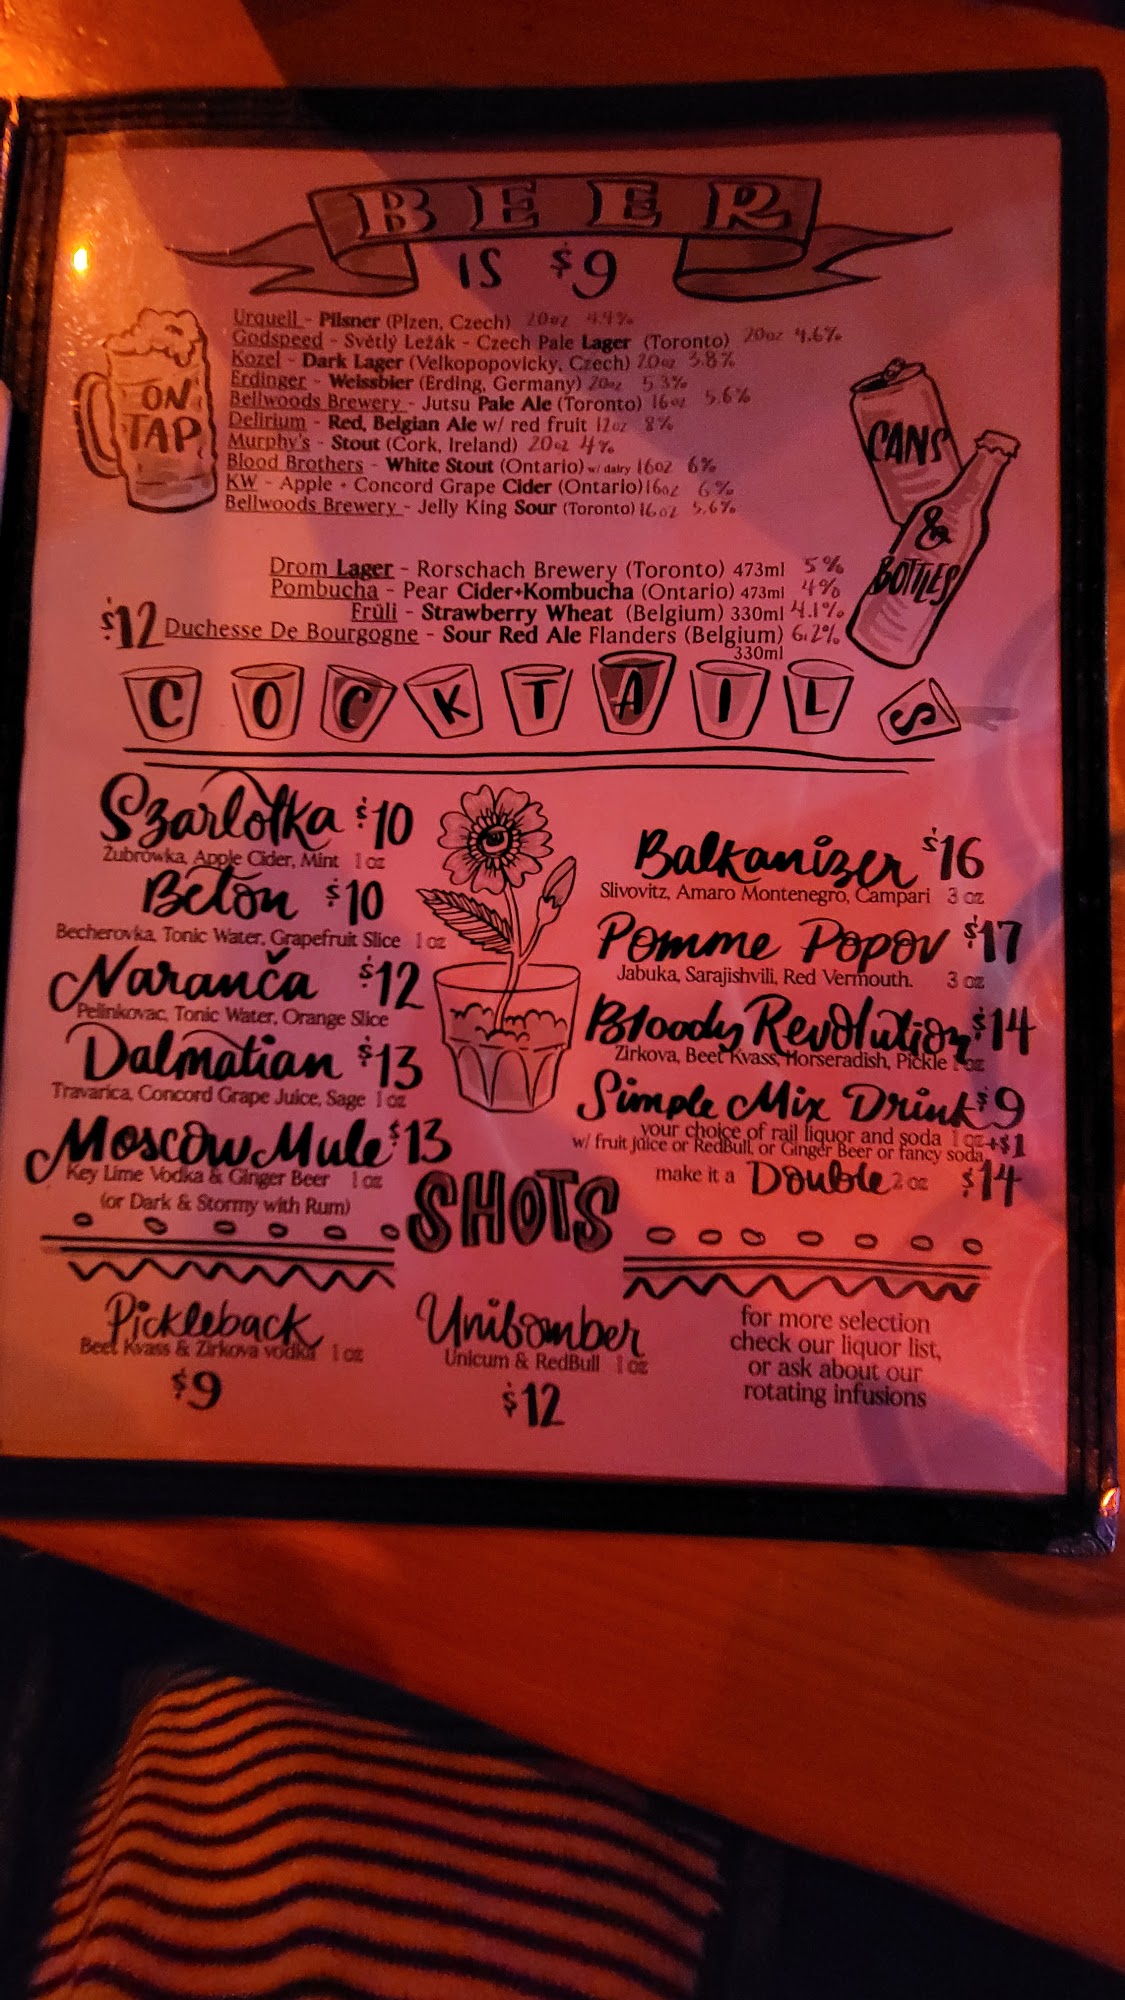 BEER
IS $9
ON TAP
Urquell - Pilsner (Plzen, Czech) 20oz 4.4%
Godspeed - Světlý Ležák - Czech Pale Lager (Toronto) 20oz 4.6%
Kozel - Dark Lager (Velkopopovicky, Czech) 20oz 3.8%
Erdinger - Weissbier (Erding, Germany) 20oz 5.3%
Bellwoods Brewery - Jutsu Pale Ale (Toronto) 16oz 5.6%
Delirium - Red, Belgian Ale w/ red fruit 12oz 8%
Murphy's - Stout (Cork, Ireland) 20oz 4%
Blood Brothers - White Stout (Ontario) w/ dairy 16oz 6%
KW - Apple + Concord Grape Cider (Ontario) 16oz 6%
Bellwoods Brewery - Jelly King Sour (Toronto) 16oz 5.6%
CANS
&
BOTTLES
Drom Lager - Rorschach Brewery (Toronto) 473ml 5%
Pombucha - Pear Cider+Kombucha (Ontario) 473ml 4%
Früli - Strawberry Wheat (Belgium) 330ml 4.1%
$12 Duchesse De Bourgogne - Sour Red Ale Flanders (Belgium) 6.2%
330ml
COCKTAILS
Szarlotka $10
Żubrówka, Apple Cider, Mint 1 oz
Beton $10
Becherovka, Tonic Water, Grapefruit Slice 1 oz
Naranča $12
Pelinkovac, Tonic Water, Orange Slice
Dalmatian $13
Travarica, Concord Grape Juice, Sage 1 oz
Moscow Mule $13
Key Lime Vodka & Ginger Beer 1 oz
(or Dark & Stormy with Rum)
Balkanizer $16
Slivovitz, Amaro Montenegro, Campari 3 oz
Pomme Popov $17
Jabuka, Sarajishvili, Red Vermouth. 3 oz
Bloody Revolution $14
Zirkova, Beet Kvass, Horseradish, Pickle 1 oz
Simple Mix Drink $9
your choice of rail liquor and soda 1 oz
w/ fruit juice or RedBull, or Ginger Beer or fancy soda +$1
make it a Double 2 oz $14
SHOTS
Pickleback
Beet Kvass & Zirkova vodka 1 oz
$9
Unibomber
Unicum & RedBull 1 oz
$12
for more selection
check our liquor list,
or ask about our
rotating infusions